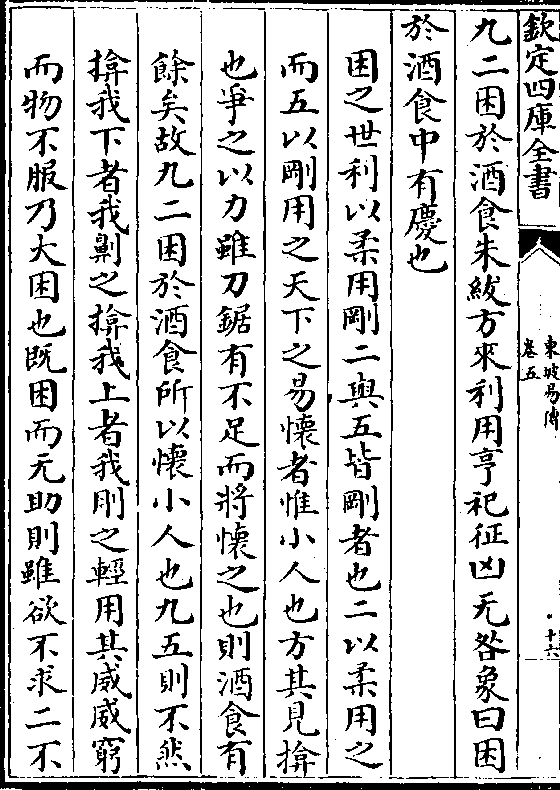 欽定四庫全書
東坡易傳
卷五
十六
九二困於酒食朱紱方來利用亨祀征凶无咎象曰困
於酒食中有慶也
困之世利以柔用剛二與五皆剛者也二以柔用之
而五以剛用之天下之易懷者惟小人也方其見揜
也爭之以力雖刀鋸有不足而將懷之也則酒食有
餘矣故九二困於酒食所以懷小人也九五則不然
揜我下者我劓之揜我上者我刖之輕用其威威窮
而物不服乃大困也既困而无助則雖欲不求二不